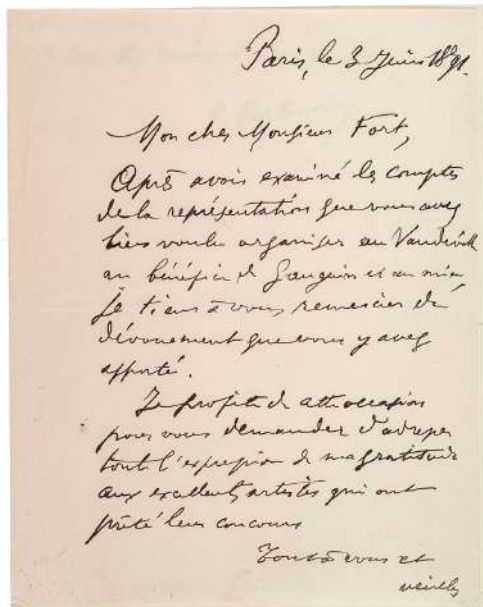 Paris, le 3 Juin 1891.
Mon cher Monsieur Fort,
Après avoir examiné les comptes
de la représentation que vous avez
bien voulu organiser au Vaudeville
au bénéfice de Gauguin et au mien,
je tiens à vous remercier du
dévouement que vous y avez
apporté.
Je profite de cette occasion
pour vous demander d'adresser
toute l'expression de ma gratitude
aux excellents artistes qui ont
prêté leur concours
Tout à vous et